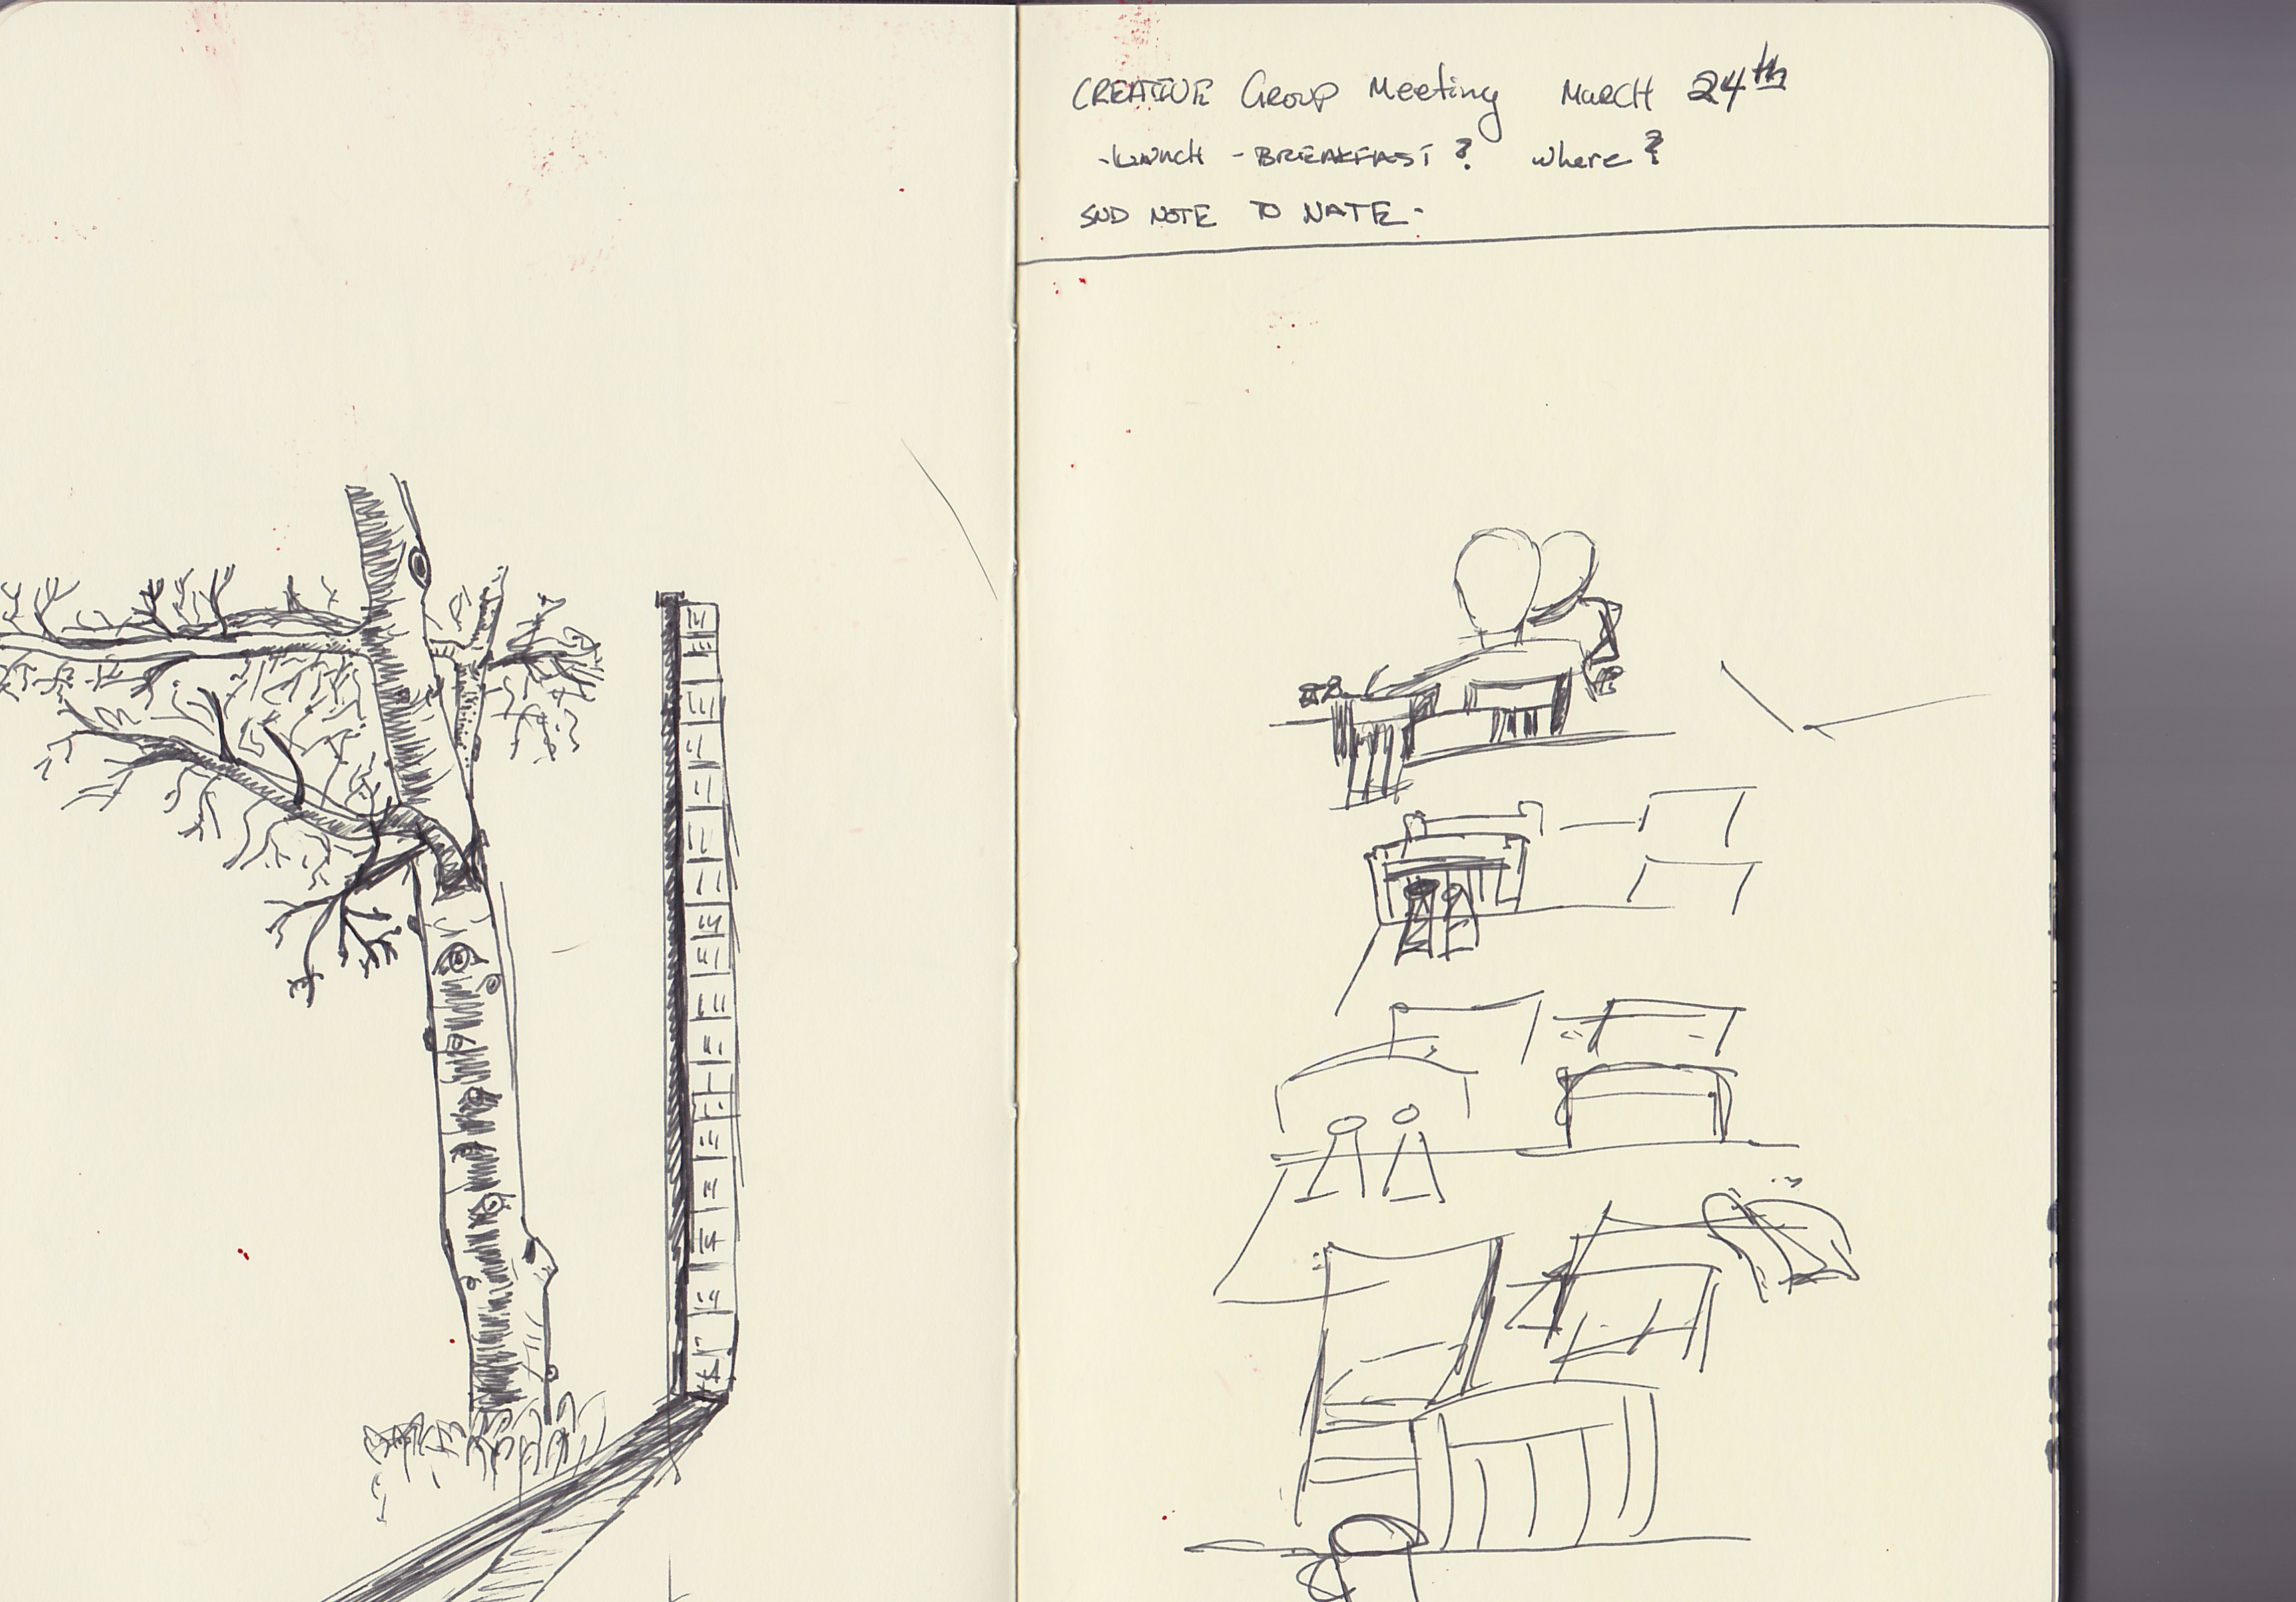 CREATIVE Group Meeting March 24th
-Lunch - BREAKFAST? where?
SND NOTE TO NATE-